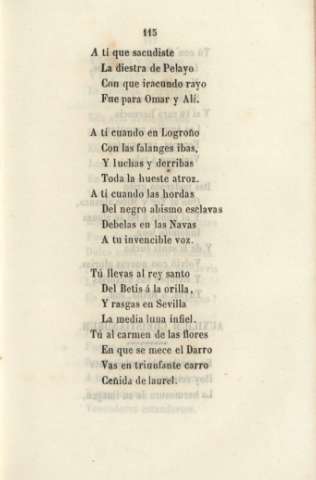 115
A ti que sacudiste
La diestra de Pelayo
Con que iracundo rayo
Fue para Omar y Alí.
A ti cuando en Logroño
Con las falanges ibas,
Y luchas y derribas
Toda la hueste atroz.
A ti cuando las hordas
Del negro abismo esclavas
Debelas en las Navas
A tu invencible voz.
Tú llevas al rey santo
Del Betis á la orilla,
Y rasgas en Sevilla
La media luna infiel.
Tú al carmen de las flores
En que se mece el Darro
Vas en triunfante carro
Ceñida de laurel.